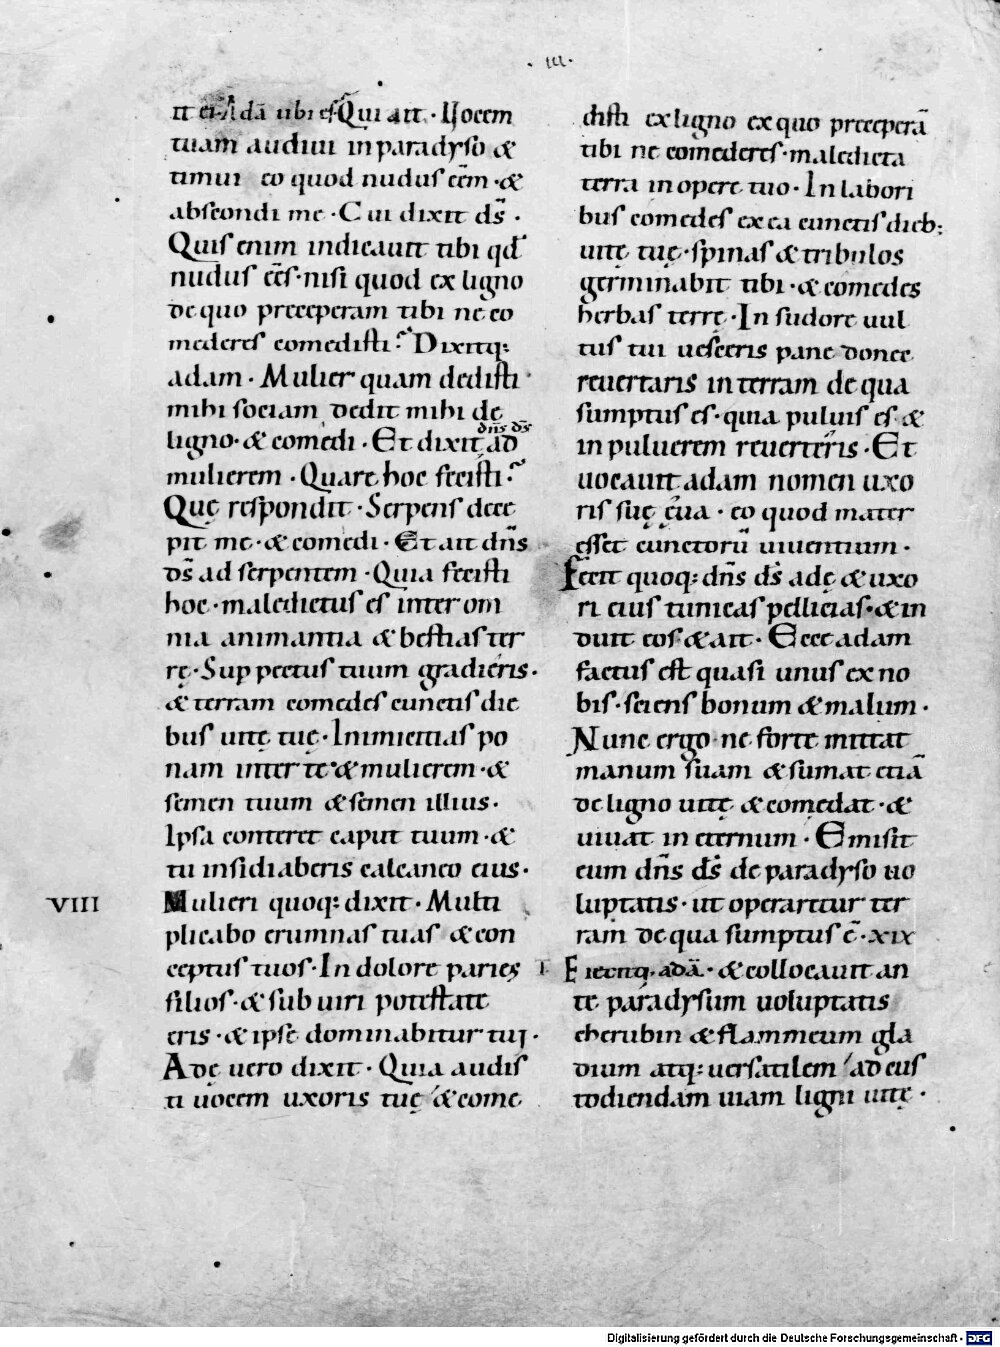 · III ·
it ei · Adā ubi es · Qui ait · Vocem
tuam audiui in paradyso &
timui eo quod nudus eēm · &
abscondi me · Cui dixit ds̄ ·
Quis enim indicauit tibi qđ
nudus eēs · nisi quod ex ligno
de quo preceperam tibi ne co
mederes comedisti? Dixitq:
adam · Mulier quam dedisti
mihi sociam dedit mihi de
ligno · & comedi · Et dixit dn̄s ds̄ ad
mulierem · Quare hoc fecisti?
Quę respondit · Serpens dece
pit me · & comedi · Et ait dn̄s
ds̄ ad serpentem · Quia fecisti
hoc · maledictus es inter om
nia animantia & bestias ter
rę · Sup pectus tuum gradieris ·
& terram comedes cunctis die
bus uitę tuę · Inimicitias po
nam inter te · & mulierem · &
semen tuum & semen illius ·
Ipsa conteret caput tuum · &
tu insidiaberis calcaneo eius ·
VIII Mulieri quoq: dixit · Multi
plicabo erumnas tuas & con
ceptus tuos · In dolore paries
filios · & sub uiri potestate
eris · & ipse dominabitur tui ·
Adę uero dixit · Quia audis
ti uocem uxoris tuę & come
disti ex ligno ex quo preceperā
tibi ne comederes · maledicta
terra in opere tuo · In labori
bus comedes ex ea cunctis dieb:
uitę tuę · spinas & tribulos
germinabit tibi · & comedes
herbas terrę · In sudore uul
tus tui uesceris pane donec
reuertaris in terram de qua
sumptus es · quia puluis es &
in puluerem reuerteris · Et
uocauit adam nomen uxo
ris suę ęua · eo quod mater
esset cunctorū uiuentium ·
Fecit quoq: dn̄s ds̄ adę & uxo
ri eius tunicas pellicias · & in
duit eos & ait · Ecce adam
factus est quasi unus ex no
bis · sciens bonum & malum ·
Nunc ergo ne forte mittat
manum suam & sumat etiā
de ligno uitę & comedat · &
uiuat in eternum · Emisit
eum dn̄s ds̄ de paradyso uo
luptatis · ut operaretur ter
ram de qua sumptus ē · xix
Eiecitq. adā · & collocauit an
te paradysum uoluptatis
cherubin & flammeum gla
dium atq: uersatilem ad cus
todiendam uiam ligni uitę ·
Digitalisierung gefördert durch die Deutsche Forschungsgemeinschaft · DFG